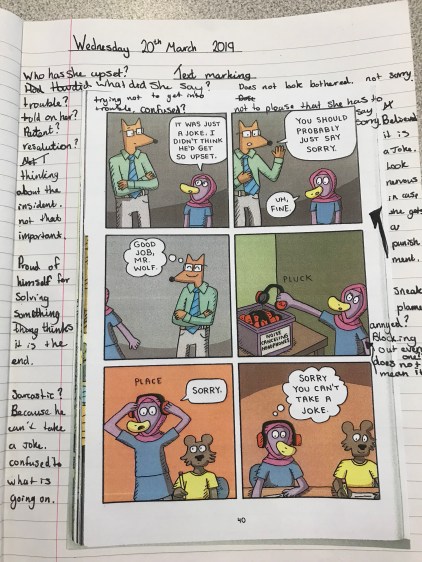 Wednesday 20th March 2019
Who has she upset?
Text marking
what did she say?
Does not look bothered. not sorry
trying not to get into
trouble. confused?
not to plouse that she has to
say
sorry
trouble?
told on her?
Patant?
resalution?
thinking
about the
insident.
not that
important.
Proud of
himself for
Solving
Something
thinks
it is the
end.
Sarcastic?
Because he
can't take
a joke.
confused to
what is
going on.
IT WAS JUST
A JOKE. I
DIDN'T THINK
HE'D GET
SO UPSET.
YOU SHOULD
PROBABLY
JUST SAY
SORRY.
UH,
FINE.
GOOD
JOB,
MR.
WOLF.
PLUCK
NOISE
CANCELLING
HEADPHONES
PLACE
SORRY.
SORRY
YOU CAN'T
TAKE A
JOKE.
40
it is
a Joke.
Look
in case
she gets
a
punish
ment.
Sneak
plame?
annyed?
Blocking
out every
one!
does not
mean it